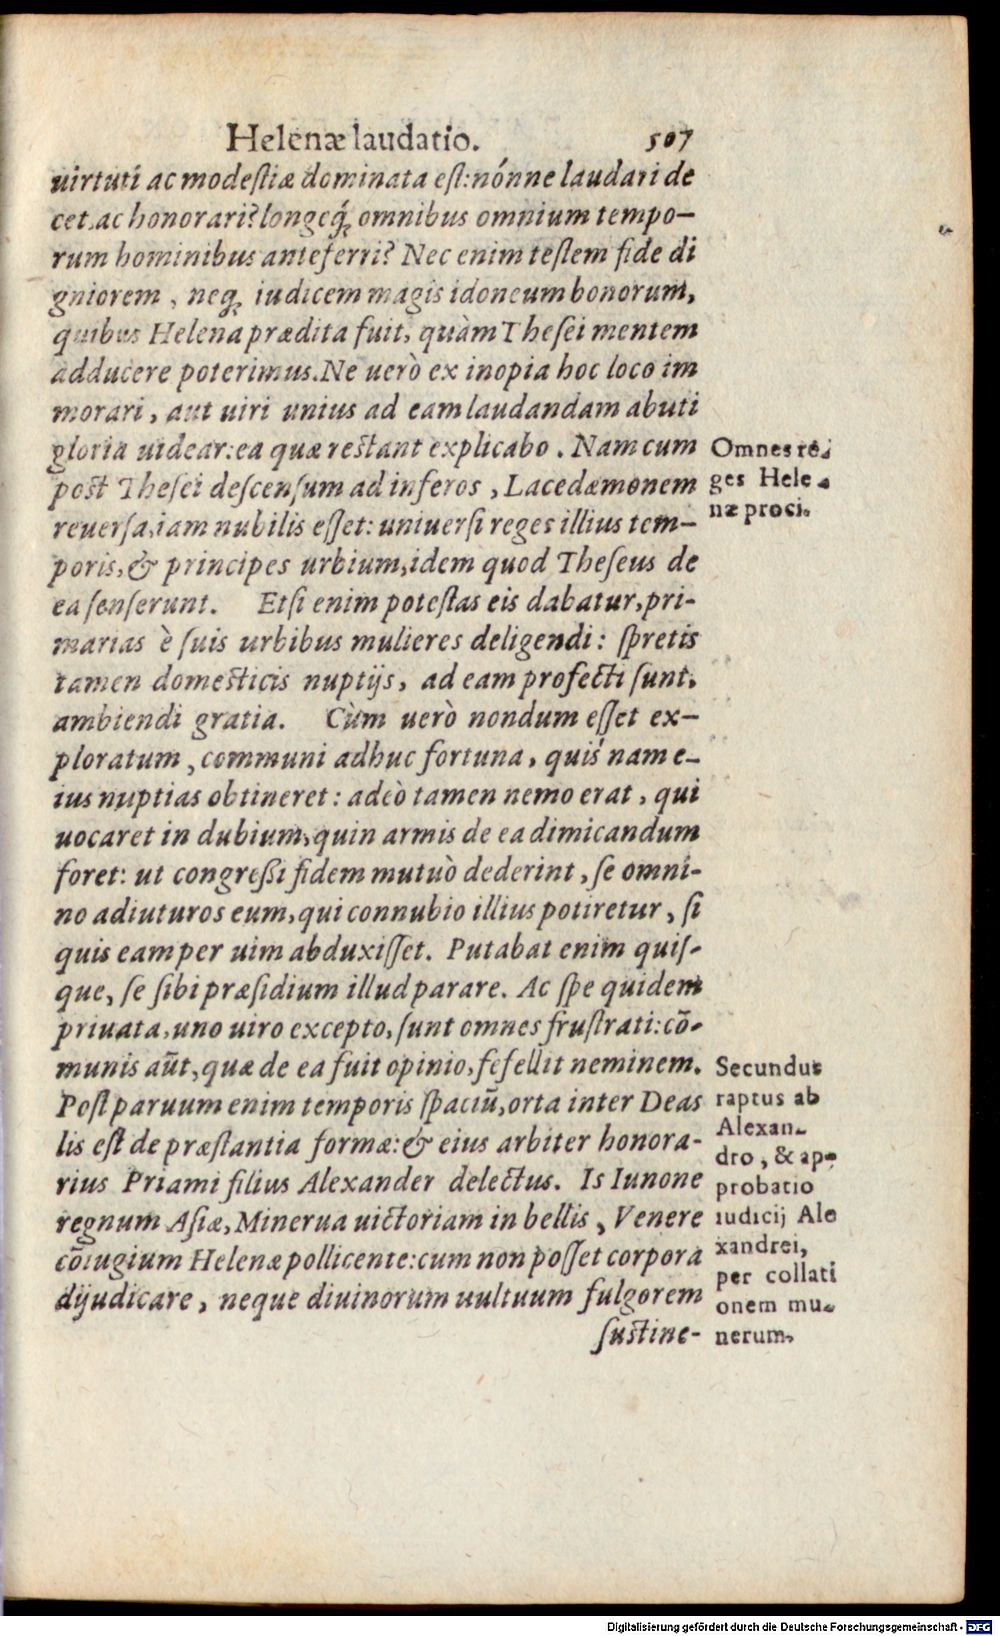 Helenæ laudatio. 507
uirtuti ac modestiæ dominata est: nónne laudari de
cet, ac honorari? longeq́; omnibus omnium tempo-
rum hominibus anteferri? Nec enim testem fide di
gniorem, neq; iudicem magis idoneum bonorum,
quibus Helena prædita fuit, quàm Thesei mentem
adducere poterimus. Ne uerò ex inopia hoc loco im
morari, aut uiri unius ad eam laudandam abuti
gloria uidear: ea quæ restant explicabo. Nam cum
post Thesei descensum ad inferos, Lacedæmonem
reuersa, iam nubilis esset: uniuersi reges illius tem-
poris, & principes urbium, idem quod Theseus de
ea senserunt. Etsi enim potestas eis dabatur, pri-
marias è suis urbibus mulieres deligendi: spretis
tamen domesticis nuptijs, ad eam profecti sunt,
ambiendi gratia. Cùm uerò nondum esset ex-
ploratum, communi adhuc fortuna, quis´nam e-
ius nuptias obtineret: adeò tamen nemo erat, qui
uocaret in dubium, quin armis de ea dimicandum
foret: ut congressi fidem mutuò dederint, se omni-
no adiuturos eum, qui connubio illius potiretur, si
quis eam per uim abduxisset. Putabat enim quis-
que, se sibi præsidium illud parare. Ac spe quidem
priuata, uno uiro excepto, sunt omnes frustrati: cõ-
munis aũt, quæ de ea fuit opinio, fefellit neminem.
Post paruum enim temporis spaciũ, orta inter Deas
lis est de præstantia formæ: & eius arbiter honora-
rius Priami filius Alexander delectus. Is Iunone
regnum Asiæ, Minerua uictoriam in bellis, Venere
cõiugium Helenæ pollicente: cum non posset corpora
dijudicare, neque diuinorum uultuum fulgorem
sustine-
Omnes re-
ges Hele-
næ proci.
Secundus
raptus ab
Alexan-
dro, & ap-
probatio
iudicij Ale
xandrei,
per collati
onem mu-
nerum.
Digitalisierung gefördert durch die Deutsche Forschungsgemeinschaft - DFG